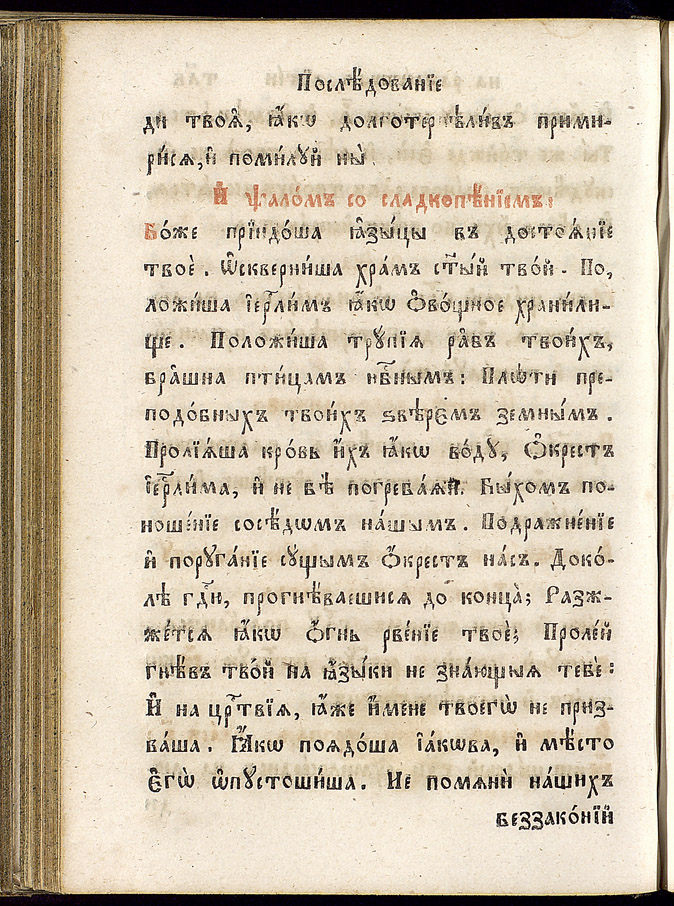 Послѣ́дованїе
ди твоѧ̀, ꙗ҆́кѡ долготерпѣли́въ примири-
ри́сѧ, и҆ поми́лꙋй ны̀
И҆ ѱало́мъ со сладкопѣ́нїемъ:
Бо́же прїидо́ша ꙗ҆зы́цы въ достоѧ́нїе
твоѐ. Ѡ҆скверни́ша хра́мъ ст҃ы́й тво́й. По,
ложи́ша і҆ерⷭ҇ли́мъ ꙗ҆́кѡ ѻ҆во́щное храни́ли-
ще. Положи́ша трꙋпїѧ̀ ра̑бъ твои́хъ,
бра̑шна пти́цамъ нбⷭ҇нымъ: Плѡ́ти пре-
подо́бныхъ твои́хъ ѕвѣрє́мъ земны́мъ.
Пролїѧ́ша кро́вь и҆́хъ ꙗ҆́кѡ во́дꙋ, Ѻ҆́крестъ
і҆ерⷭ҇ли́ма, и҆ не бѣ̀ погреба́ѧй. Бы́хомъ по-
ноше́нїе сосѣ́дѡмъ на́шымъ. Подражне́нїе
и҆ порꙋга́нїе сꙋ́щымъ ѻ҆́крестъ на́съ. Доко́-
лѣ гдⷭ҇и, прогнѣ́ваешисѧ до конца̀; Разж-
же́тсѧ ꙗ҆́кѡ ѻ҆́гнь рве́нїе твоѐ; Проле́й
гнѣ́въ тво́й на ꙗ҆зы́ки не зна́ющыѧ тебѐ:
И҆ на црⷭ҇твїѧ, ꙗ҆́же и҆́мене твоегѡ̀ не приз-
ва́ша. Ꙗ҆́кѡ поѧдо́ша і҆а́кѡва, и҆ мѣ́сто
є҆гѡ̀ ѡ҆пꙋстоши́ша. Не помѧнѝ на́шихъ
беззако́нїй